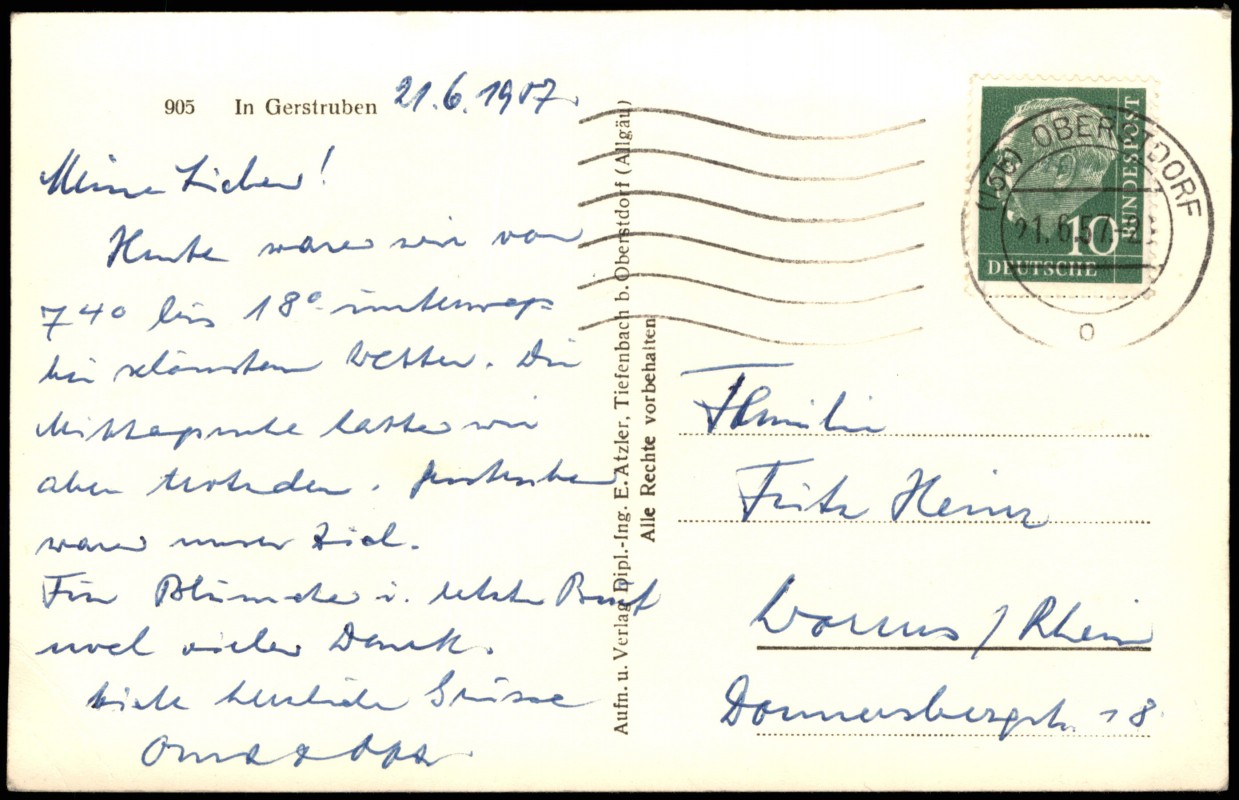 905 In Gerstruben 21.6.1957.
Meine Lieben!
Heute waren wir von
7 40 bis 18 0 unterwegs
bei schönstem Wetter. Die
Mittagsruhe hatten wir
aber trotzdem. Gerstruben
waren unser Ziel.
Für Blümchen u. letzten Brief
noch vielen Dank.
Viele herzliche Grüsse
Oma & Opa
Aufn. u. Verlag Dipl.-Ing. E. Atzler, Tiefenbach b. Oberstdorf (Allgäu)
Alle Rechte vorbehalten
OBERSTDORF
21.6.57
10
DEUTSCHE
BUNDESPOST
Familie
Fritz Heinz
Worms / Rhein
Donnersbergstr. 18